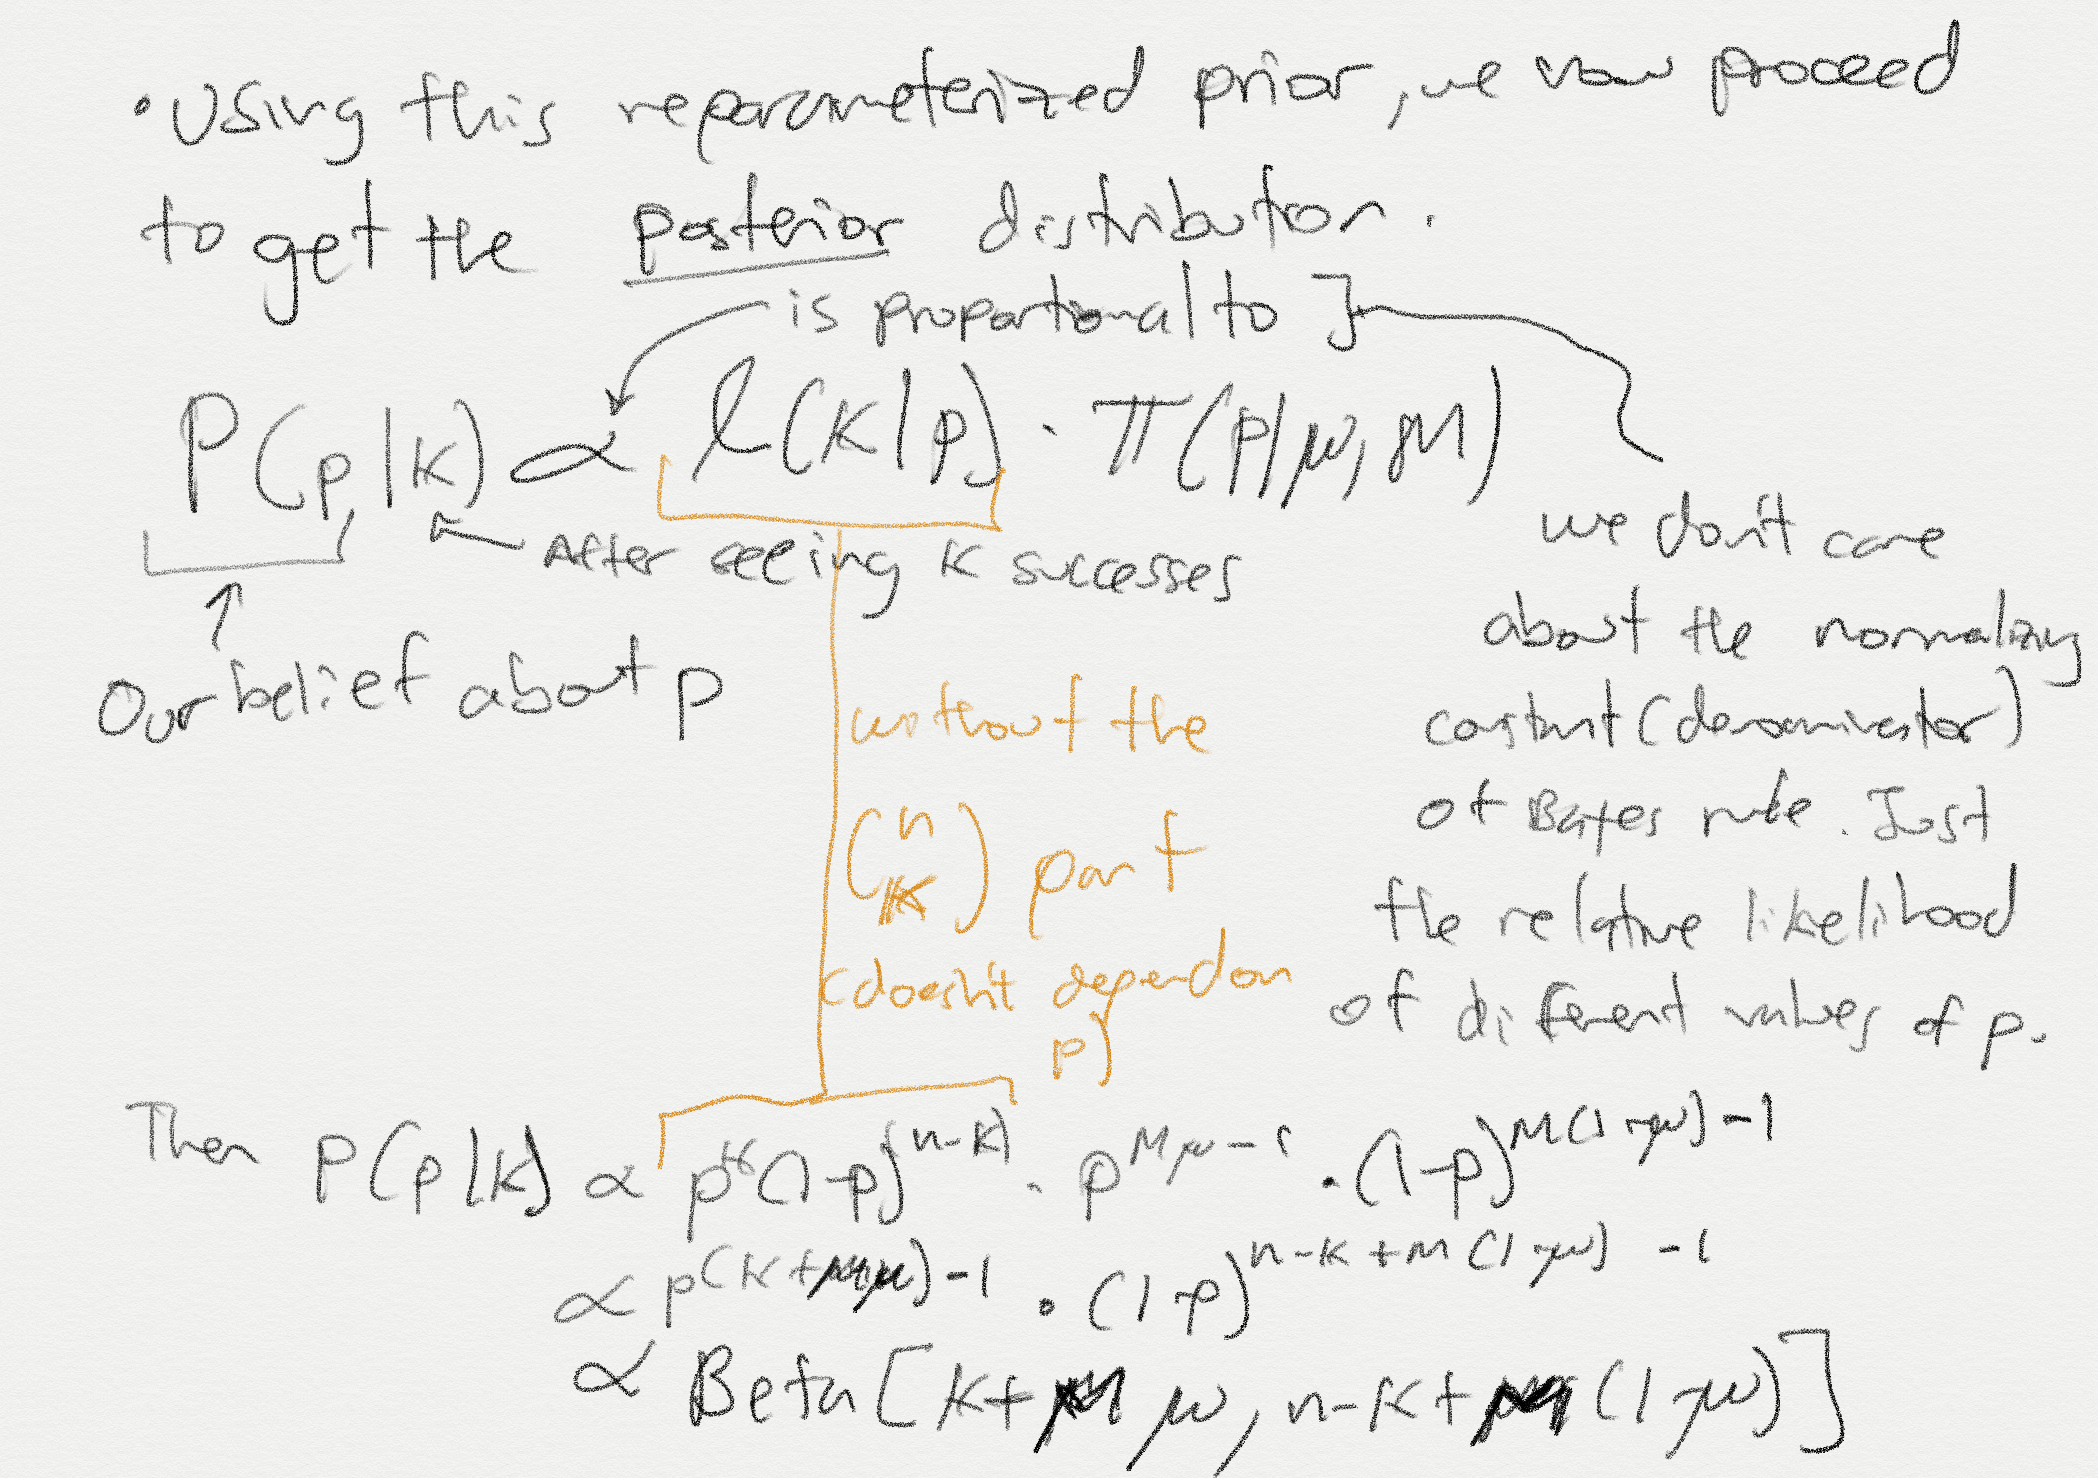 • Using this reparameterized prior, we now proceed
to get the posterior distribution.
is proportional to ]
P(p|K) ∝ l(K|p) · π(p|μ, M)
After seeing K successes
Our belief about p
we don't care
about the normalizing
constant (denominator)
of Bayes rule. Just
the relative likelihood
of different values of p.
without the
(n K) part
(doesn't depend on
p)
Then P(p|K) ∝ p^K (1-p)^(n-K) · p^(Mμ-1) · (1-p)^(M(1-μ)-1)
∝ p^((K+Mμ)-1) · (1-p)^(n-K+M(1-μ)-1)
∝ Beta[K+Mμ, n-K+M(1-μ)]